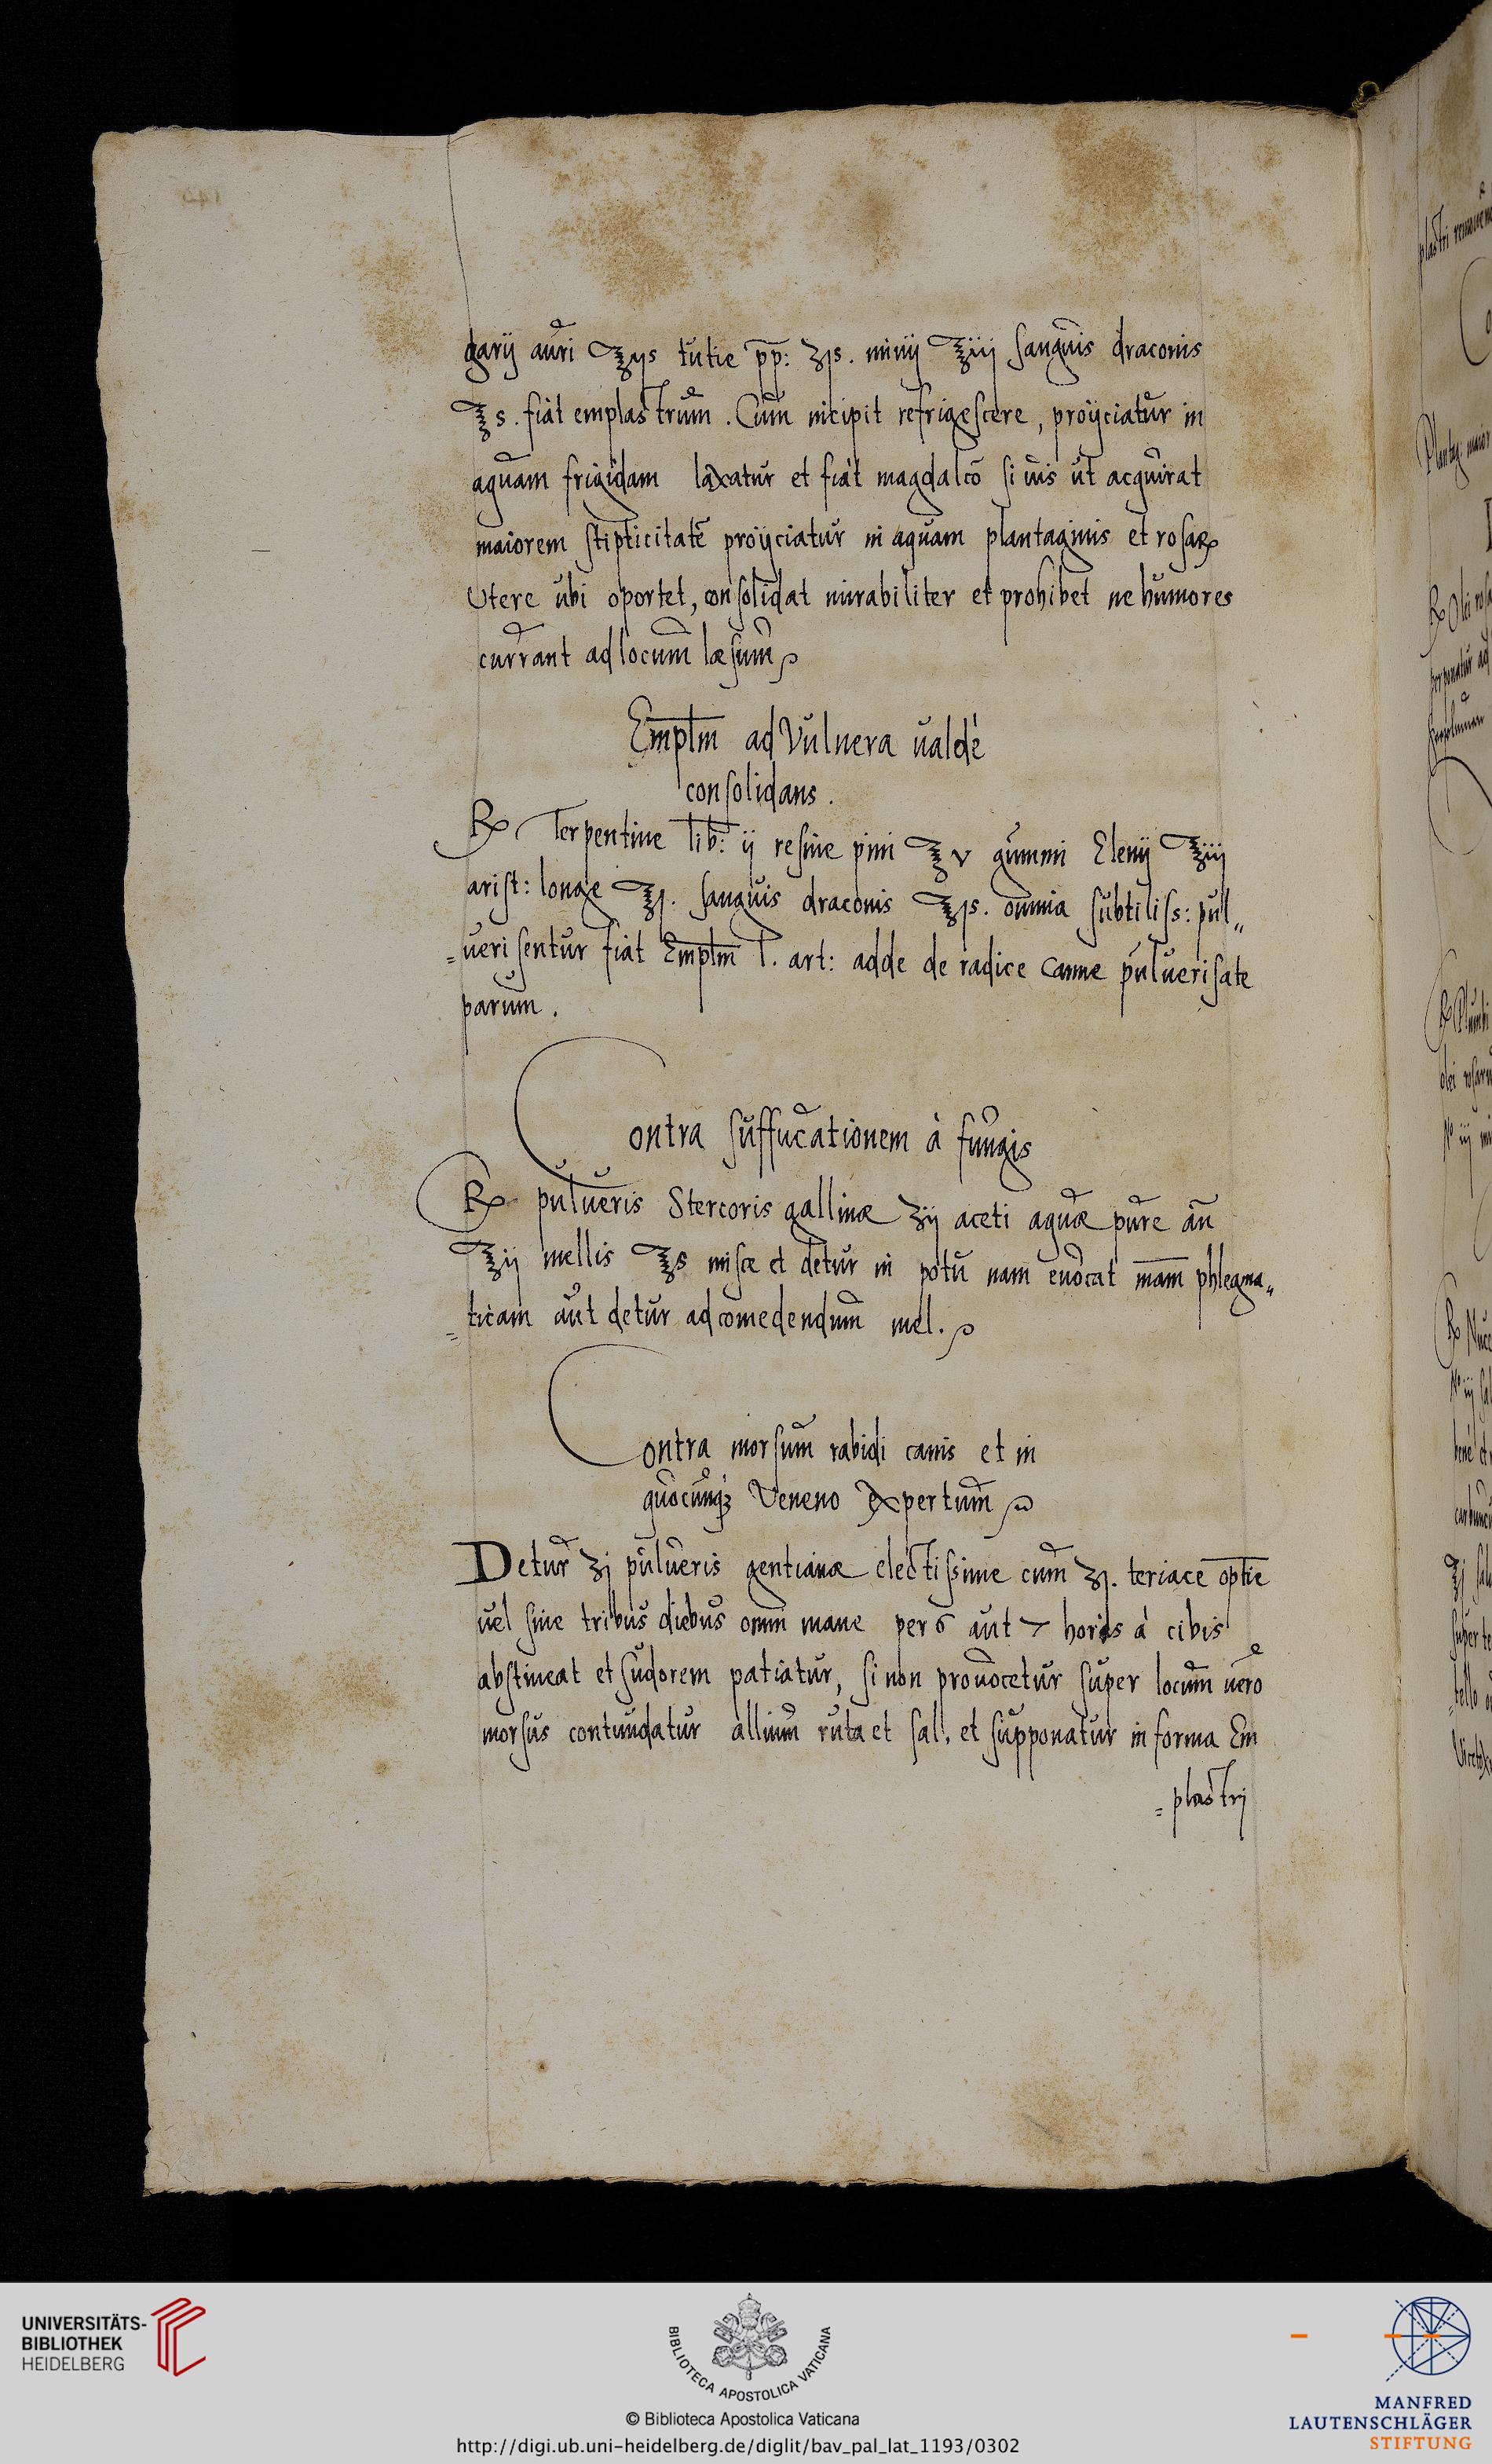 garij auri ℥ijs tutie pp: ʒjs. minij ℥iij sanguis draconis
℥s. fiat emplastrum. Cum incipit refrigescere, proijciatur in
aquam frigidam laxatur et fiat magdaleō si uis ut acquirat
maiorem stipticitatē proijciatur in aquam plantaginis et rosaꝝ
Utere ubi oportet, consolidat mirabiliter et prohibet ne humores
currant ad locum læsum
Emplm ad Vulnera ualdè
consolidans.
℞ Terpentine lib: ij resine pini ℥v gummi Elenij ℥iij
arist: longe ℥j. sanguis draconis ℥js. omnia subtiliss: pul„
=uerisentur fiat Emplm l. art: adde de radice canne puluerisate
parum.
Contra suffucationem à fungis
℞ pulueris Stercoris gallinæ ʒij aceti aquæ pure añ
℥ij mellis ℥s misce et detur in potu nam euocat mam phlegma„
=ticam aut detur ad comedendum mel.
Contra morsum rabidi canis et in
quocunqꝫ Veneno expertum
Detur ʒj pulueris gentianæ electissime cum ʒj. teriace optie
uel sine tribus diebus omni mane per 6 aut 7 horis à cibis
abstineat et sudorem patiatur, si non prouocetur super locum uero
morsus contundatur allium ruta et sal. et supponatur in forma Em
=plastrj
UNIVERSITÄTS-
BIBLIOTHEK
HEIDELBERG
BIBLIOTECA APOSTOLICA VATICANA
© Biblioteca Apostolica Vaticana
http://digi.ub.uni-heidelberg.de/diglit/bav_pal_lat_1193/0302
MANFRED
LAUTENSCHLÄGER
STIFTUNG